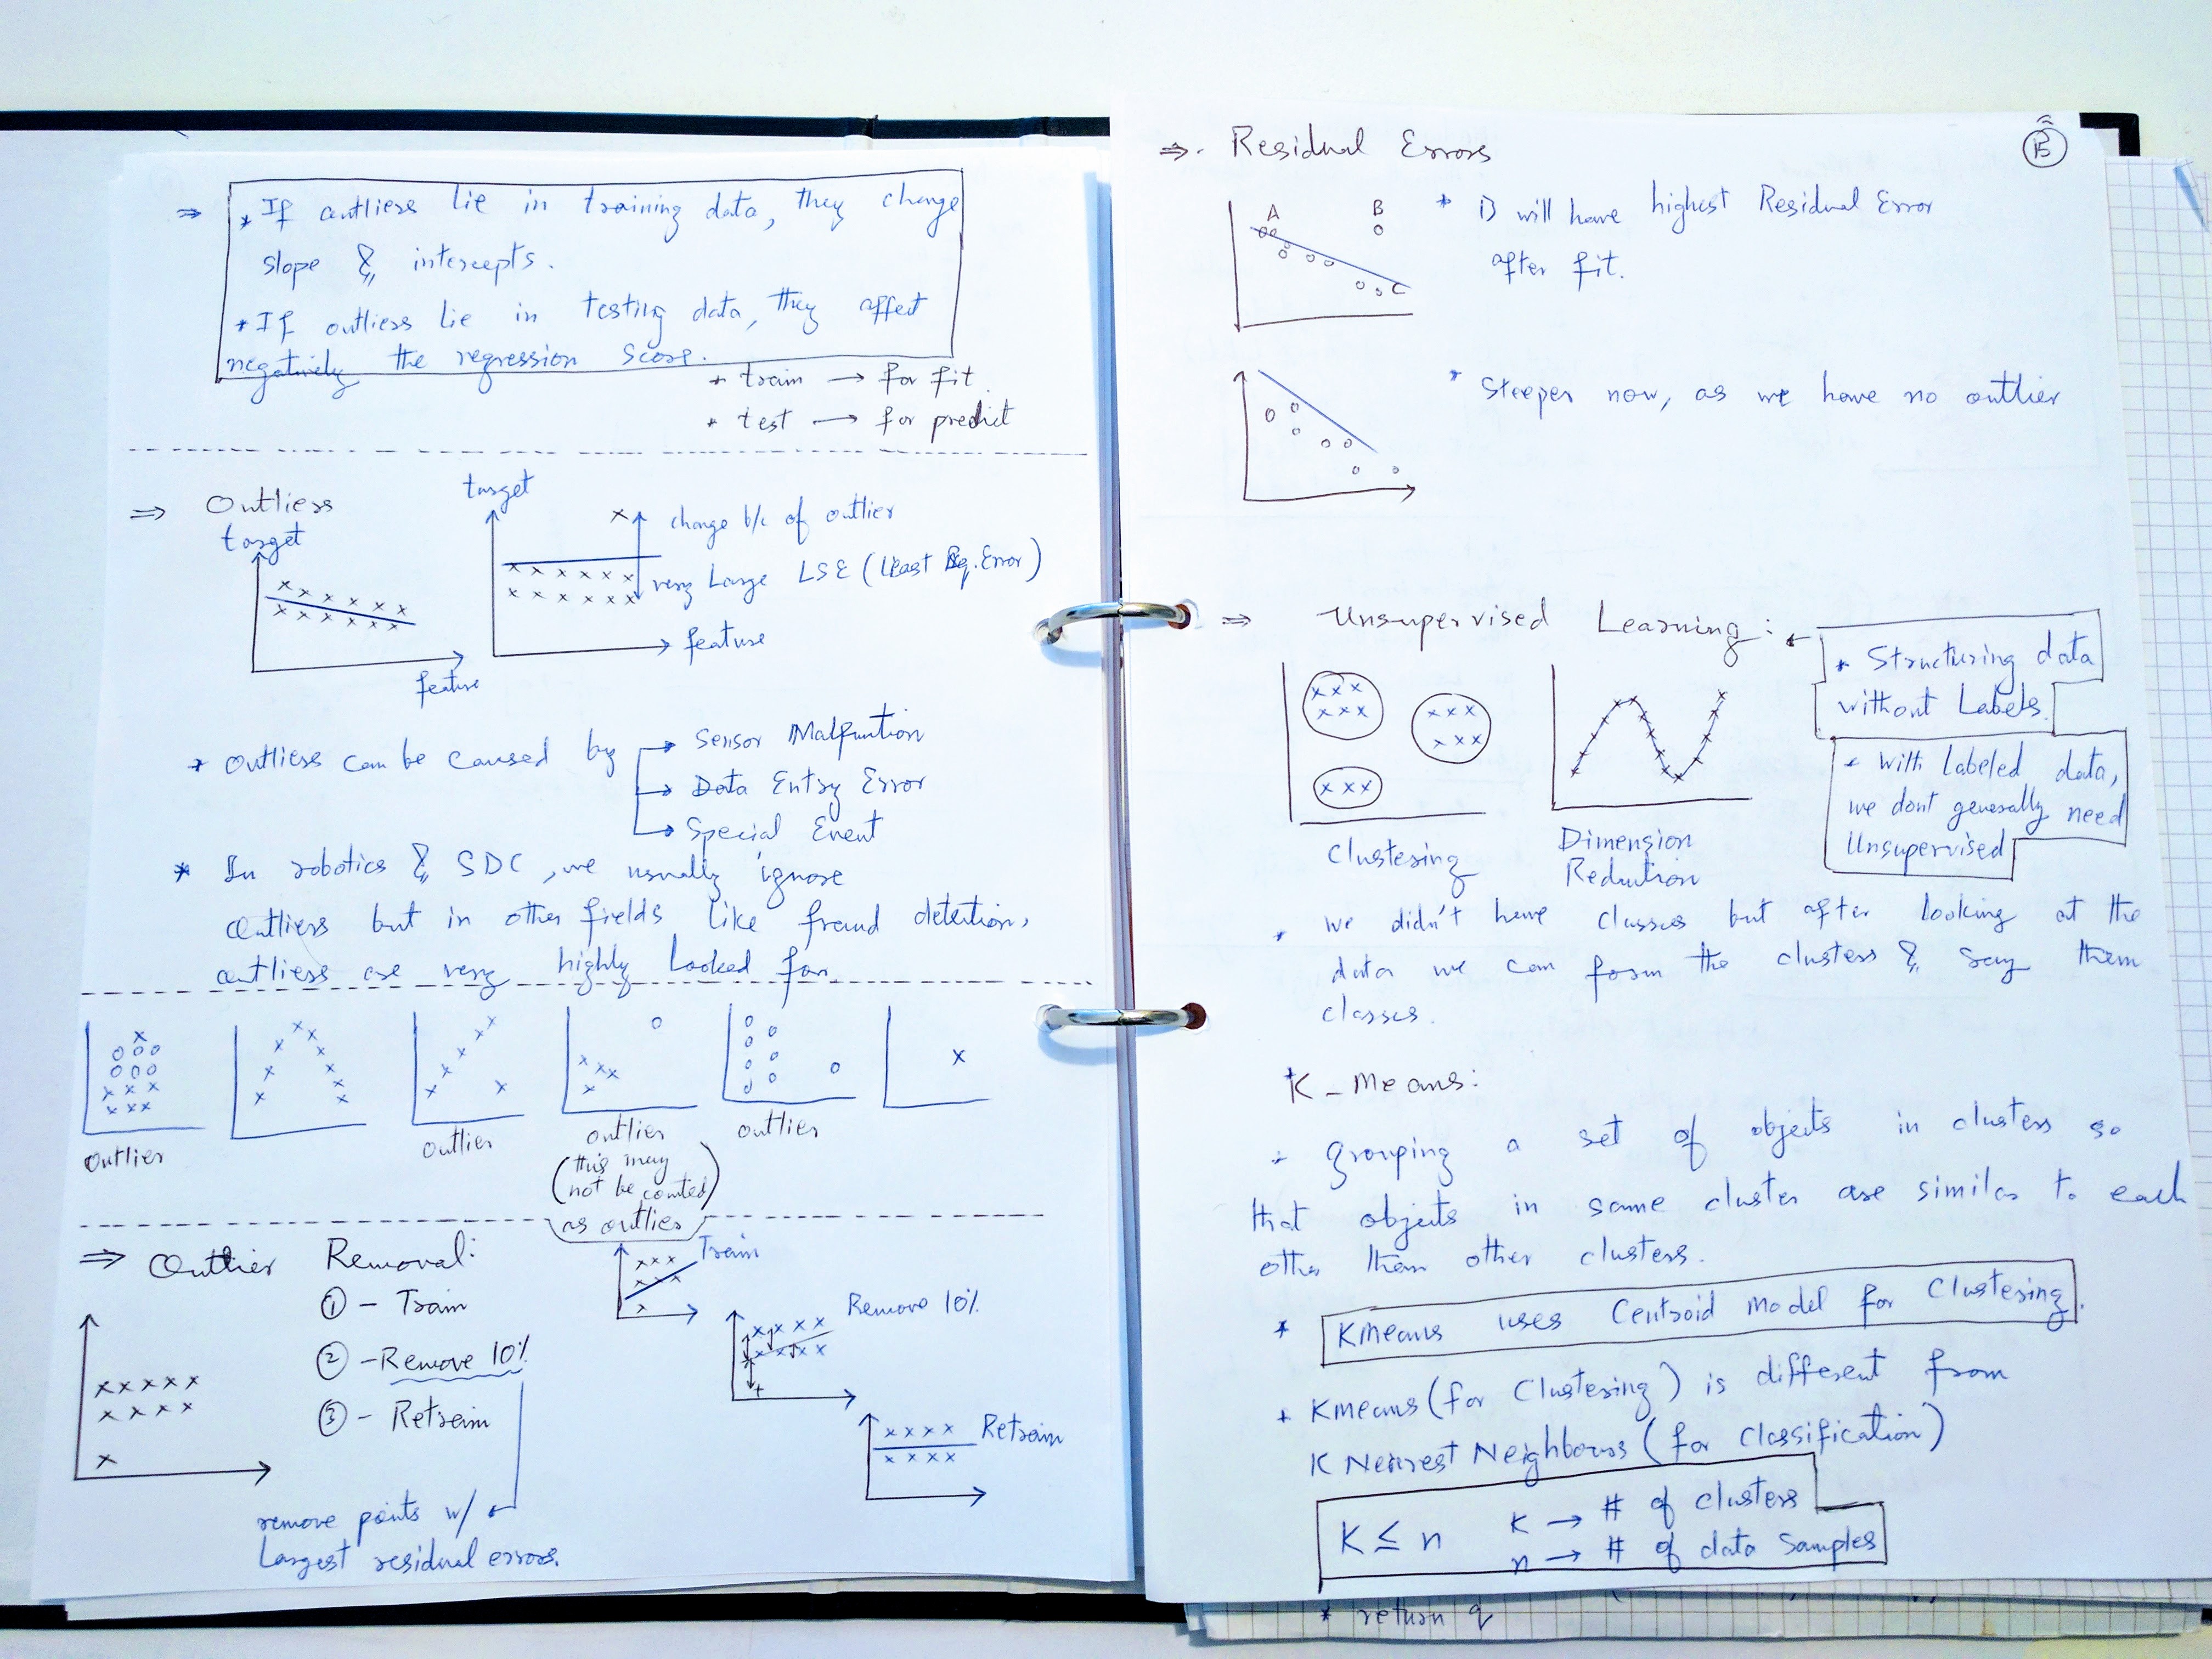 ⇒ * If outliers lie in training data, they change
slope & intercepts.
* If outliers lie in testing data, they affect
negatively the regression score.
* train → for fit
* test → for predict
⇒ Outliers
target
feature
target
change b/c of outlier
very Large LSE (Least Sq. Error)
feature
* Outliers can be caused by
→ Sensor Malfuntion
→ Data Entry Error
→ Special Event
* In robotics & SDC, we usually ignore
outliers but in other fields like fraud detection,
outliers are very highly looked for.
Outlier
Outlier
outlier
(this may
not be counted)
as outlier
outlier
⇒ Outlier Removal:
① - Train
② - Remove 10%
③ - Retrain
remove points w/
Largest residual errors.
Train
Remove 10%
Retrain
15
⇒ Residual Errors
A B
C
* B will have highest Residual Error
after fit.
* Steeper now, as we have no outlier
⇒ Unsupervised Learning:
* Structuring data
without Labels.
* With labeled data,
we dont generally need
Unsupervised
Clustering
Dimension
Reduction
* we didn't have classes but after looking at the
data we can form the clusters & say them
classes.
* K-Means:
* grouping a set of objects in clusters so
that objects in same cluster are similar to each
other than other clusters.
* Kmeans uses Centroid Model for Clustering.
* Kmeans (for Clustering) is different from
K Nearest Neighbours (for Classification)
K ≤ n
K → # of clusters
n → # of data Samples
* return q